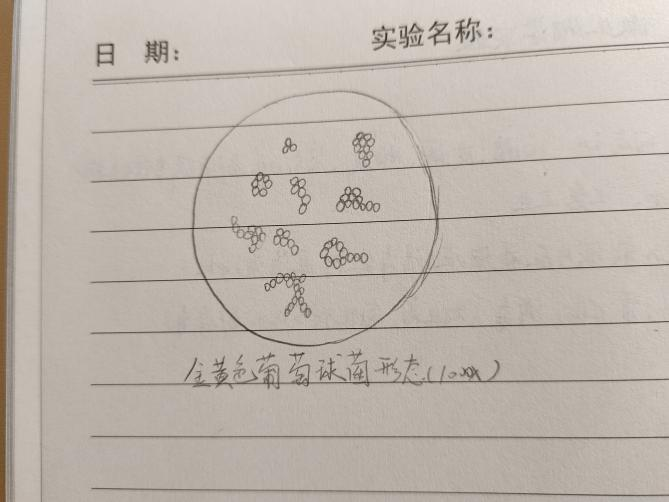 日 期： 实验名称：
金黄色葡萄球菌形态(100x)